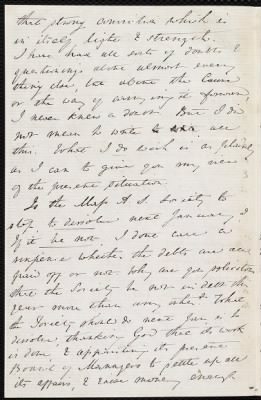 that strong conviction which is
in itself light & strength.
I have had all sorts of doubts &
questionings about almost every
thing else, but about the Cause
or the way of carrying it forward,
I never knew a doubt. But I did
not mean to write all
this. What I do wish is as plainly
as I can to give you my view
of the present situation.
Is the Mass A. S. Society to
stop, to dissolve next January?
If it be not, I dont care a
sixpence whether the debts are all
paid off or not. Why are you solicitous
that the Society be not in debt this
year more than any other? What
the Society should do next Jan. is to
dissolve, thanking God that its work
is done, & appointing its present
Board of Managers to settle up all
its affairs, & raise money enough